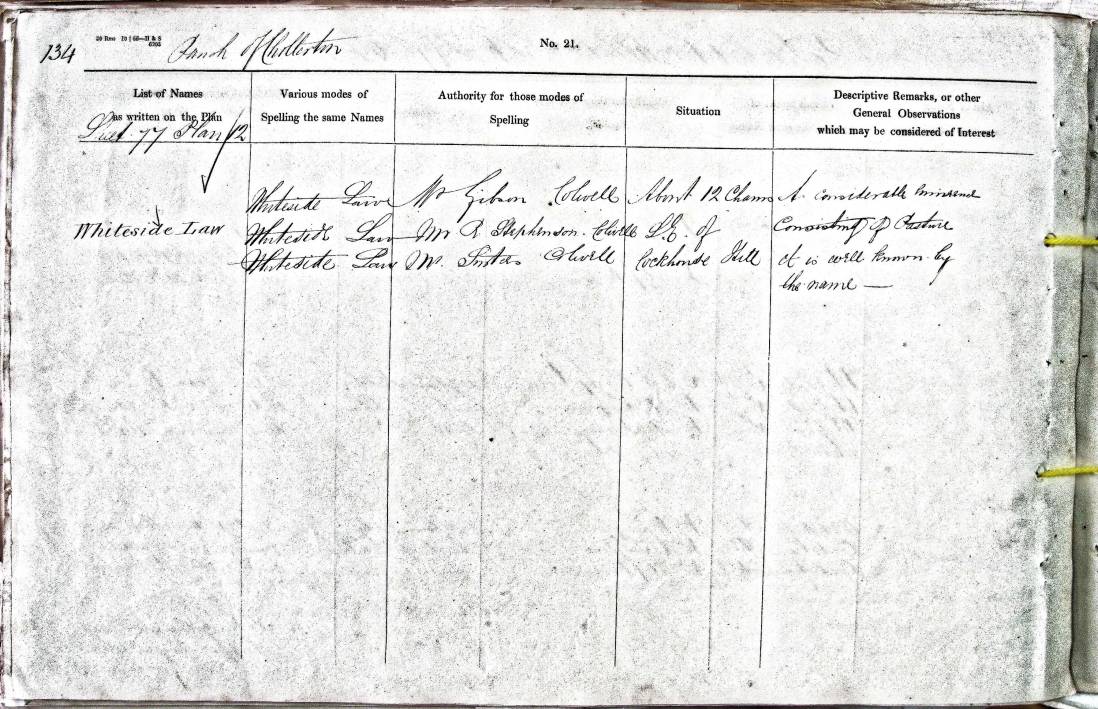 134
Parish of Chollerton
No. 21.
List of Names
as written on the Plan
Various modes of
Spelling the same Names
Authority for those modes of
Spelling
Situation
Descriptive Remarks, or other
General Observations
which may be considered of Interest
Sheet 77 Plan 12
Whiteside Law
Whiteside Law
Whiteside Law
Whiteside Law
Mr Gibson Colwell
Mr R. Stephenson Colwell
Mr. Colwell
About 12 Chains
S.E. of
Cockhouse Hill
A considerable Eminence
Consisting of Pasture
it is well known by
the name —